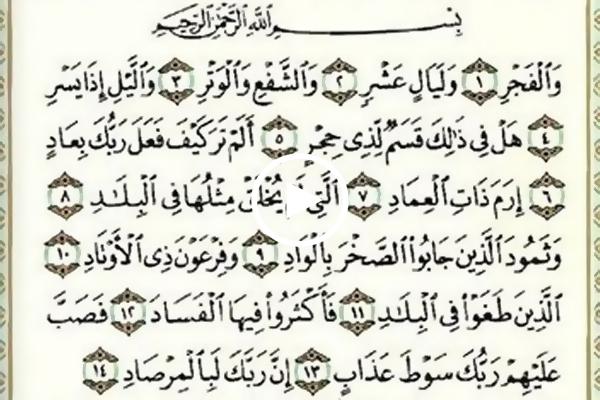 بِسْمِ اللَّهِ الرَّحْمَٰنِ الرَّحِيمِ
وَالْفَجْرِ ١ وَلَيَالٍ عَشْرٍ ٢ وَالشَّفْعِ وَالْوَتْرِ ٣ وَاللَّيْلِ إِذَا يَسْرِ
٤ هَلْ فِي ذَٰلِكَ قَسَمٌ لِّذِي حِجْرٍ ٥ أَلَمْ تَرَ كَيْفَ فَعَلَ رَبُّكَ بِعَادٍ
٦ إِرَمَ ذَاتِ الْعِمَادِ ٧ الَّتِي لَمْ يُخْلَقْ مِثْلُهَا فِي الْبِلَٰدِ ٨
وَثَمُودَ الَّذِينَ جَابُوا الصَّخْرَ بِالْوَادِ ٩ وَفِرْعَوْنَ ذِي الْأَوْتَادِ ١٠
الَّذِينَ طَغَوْا فِي الْبِلَٰدِ ١١ فَأَكْثَرُوا فِيهَا الْفَسَادَ ١٢ فَصَبَّ
عَلَيْهِمْ رَبُّكَ سَوْطَ عَذَابٍ ١٣ إِنَّ رَبَّكَ لَبِالْمِرْصَادِ ١٤